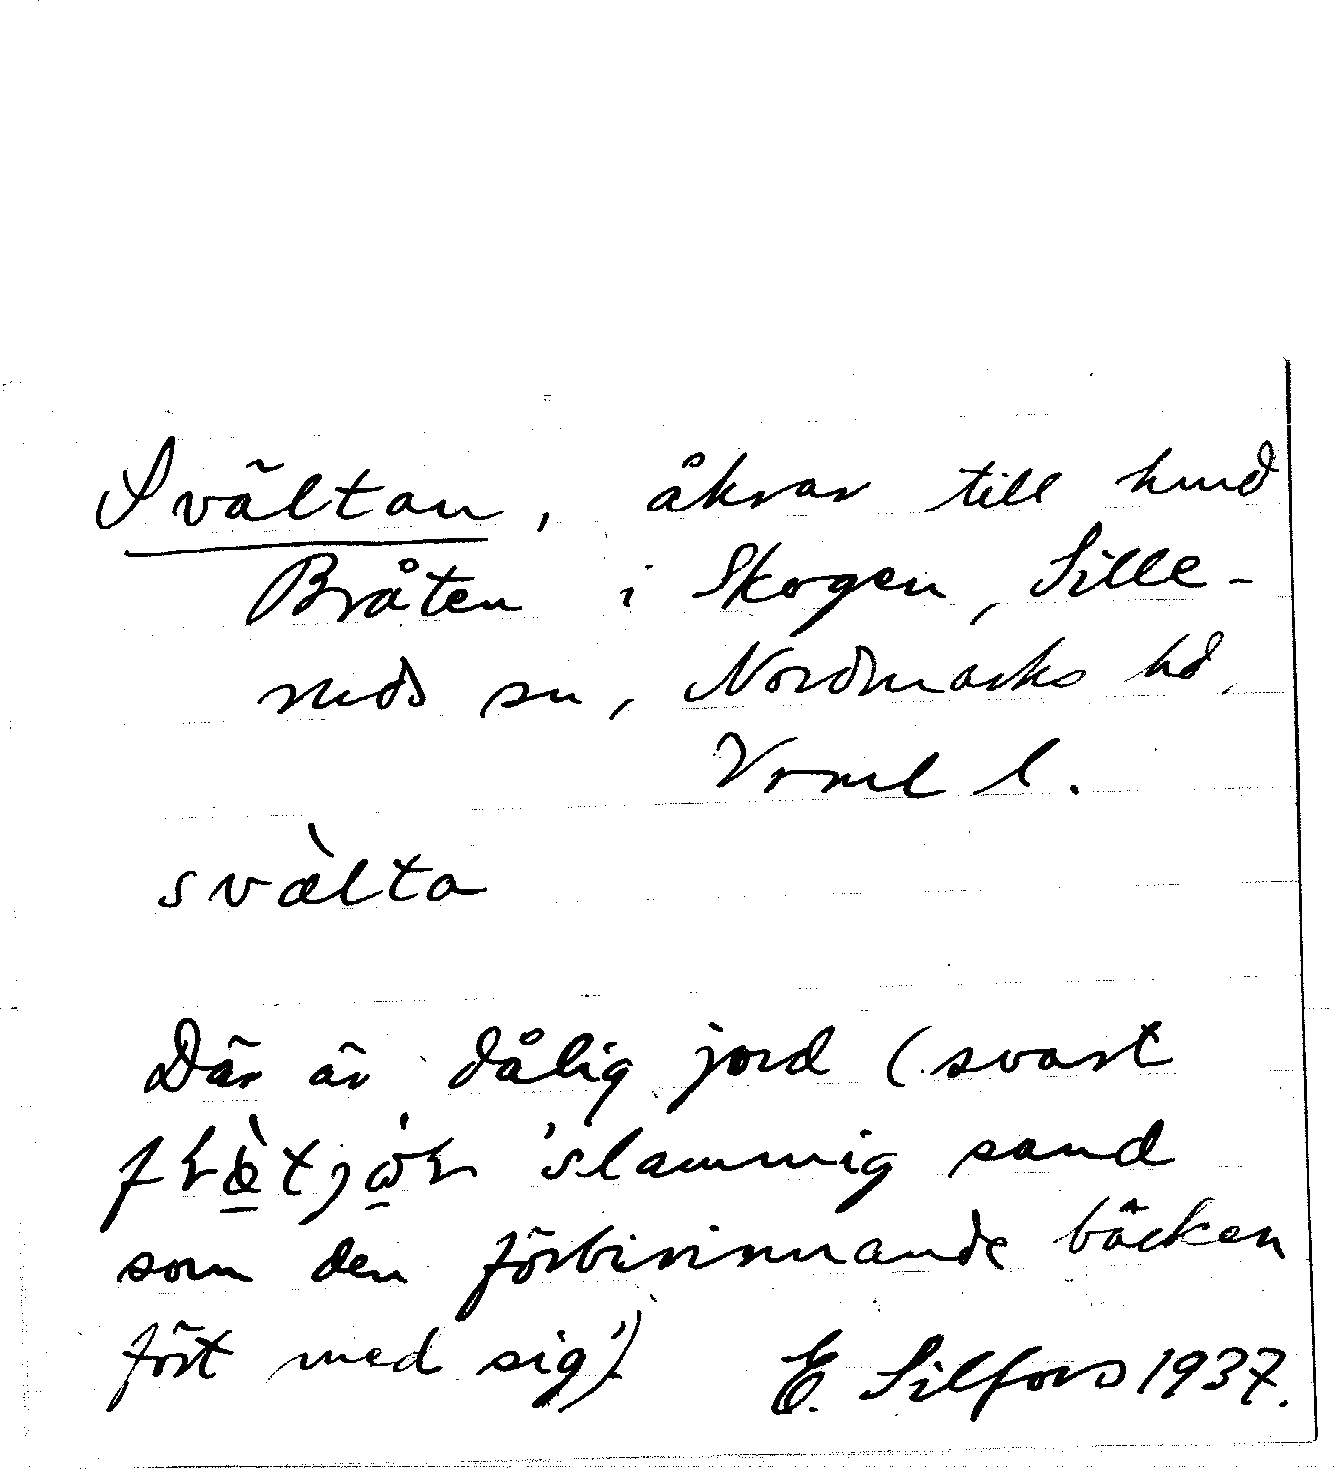 Svältan, åkrar till hmd
Bråten i Skogen, Sille-
ruds sn, Nordmarks hd,
Vrml l.
svæ̀lta
Där är dålig jord (svart
'slammig sand
som den förbirinnande bäcken
fört med sig')
E. Silfors 1937.